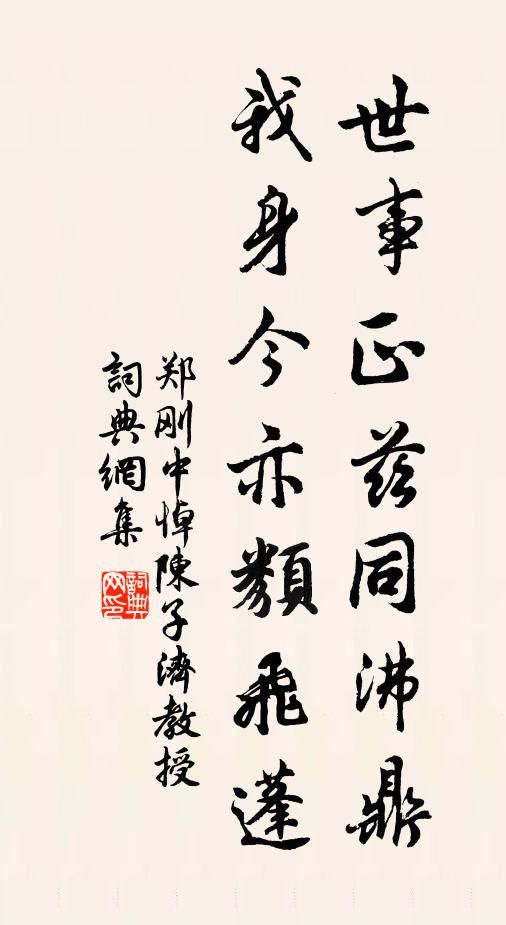 世事正茲同沸鼎
我身今亦類飛蓬
郑刚中悼陳子濟教授
詞典網集
詞典網印